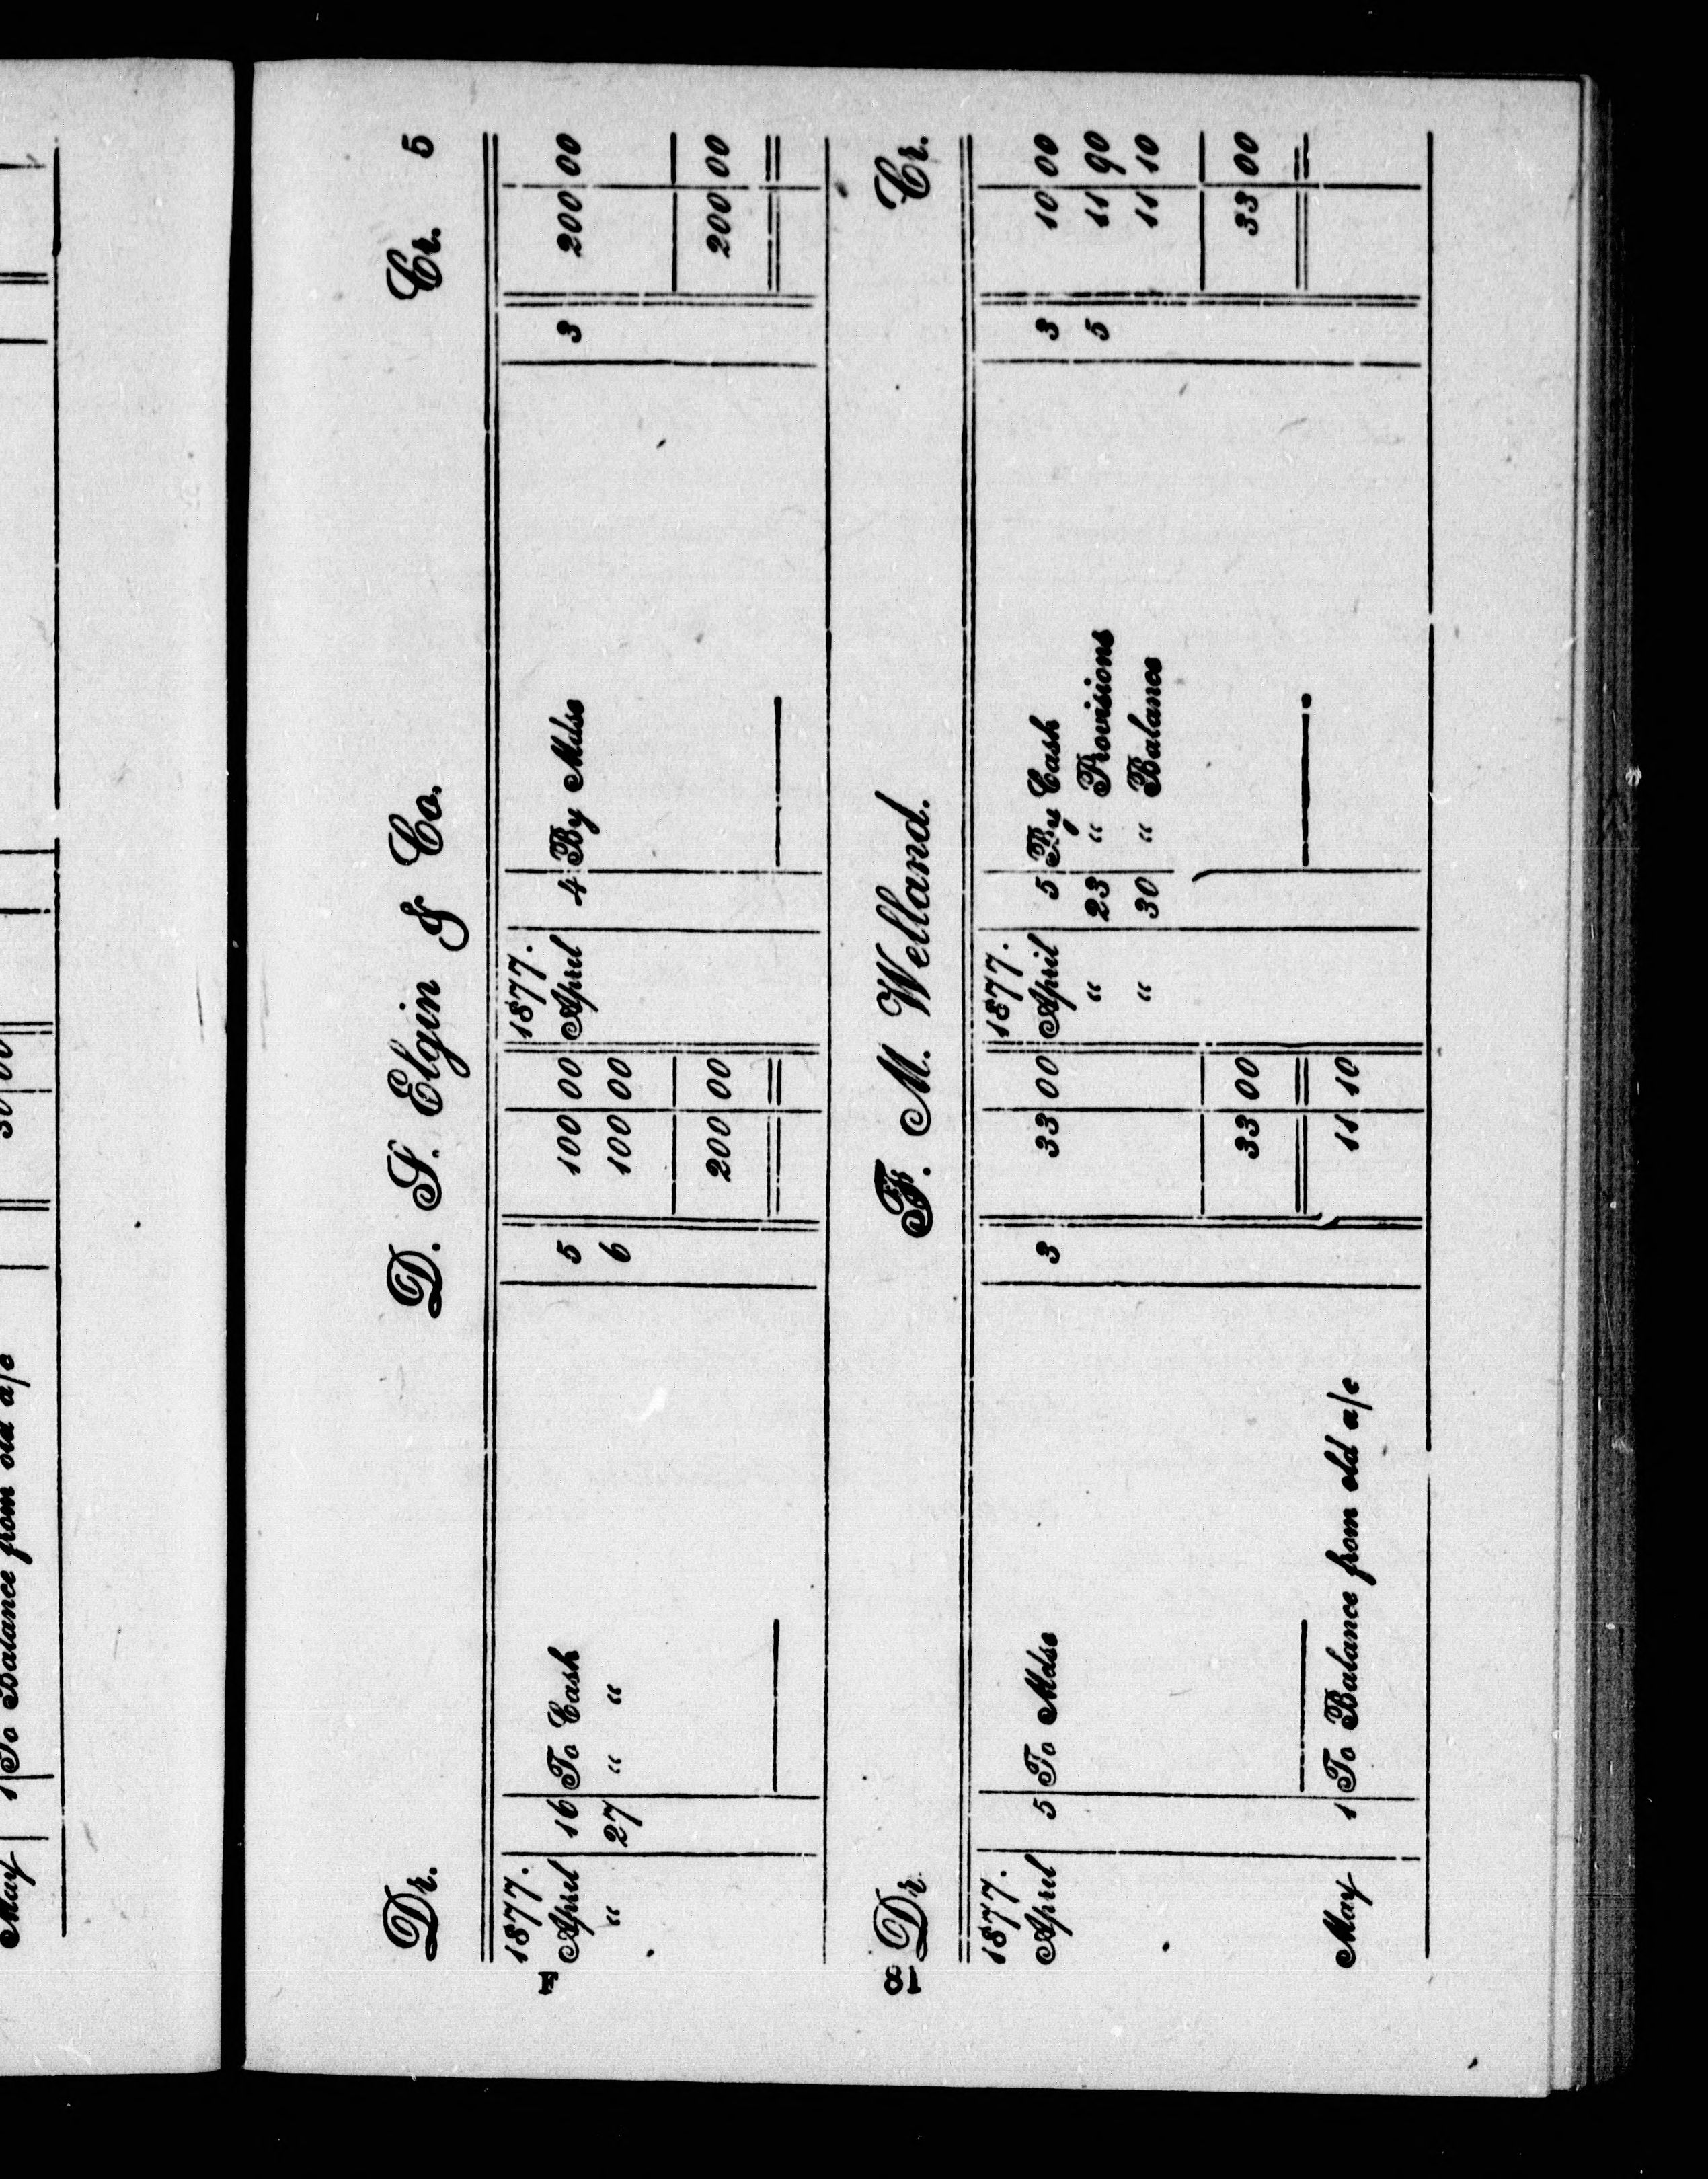 May 1 To Balance from old a/c
Dr. D. S. Elgin & Co. Cr. 5
1877. 1877.
April 16 To Cash 5 100 00 April 4 By Mdse 3 200 00
" 27 " " 6 100 00
200 00 200 00
Dr. F. M. Welland. Cr.
1877. 1877.
April 5 To Mdse 3 33 00 April 5 By Cash 3 10 00
" 23 " Provisions 5 11 90
" 30 " Balance 11 10
33 00 33 00
May 1 To Balance from old a/c 11 10
E
18